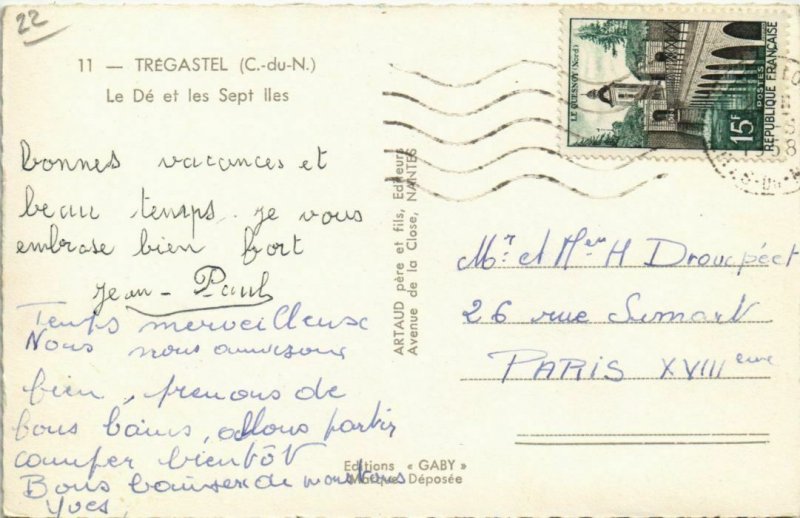 22
11 — TRÉGASTEL (C.-du-N.)
Le Dé et les Sept Iles
bonnes vacances et
beau temps. je vous
embrase bien fort
Jean-Paul
Temps merveilleux
Nous nous amusons
bien, prenons de
bons bains, allons partir
camper bientôt
Bons baisers de nous tous
Yves
ARTAUD père et fils, Editeurs
Avenue de la Close, NANTES
Editions « GABY »
Marque Déposée
LE QUESNOY (Nord)
15F
POSTES
RÉPUBLIQUE FRANÇAISE
Mr. et Mme H
26 rue Simart
PARIS XVIIIeme